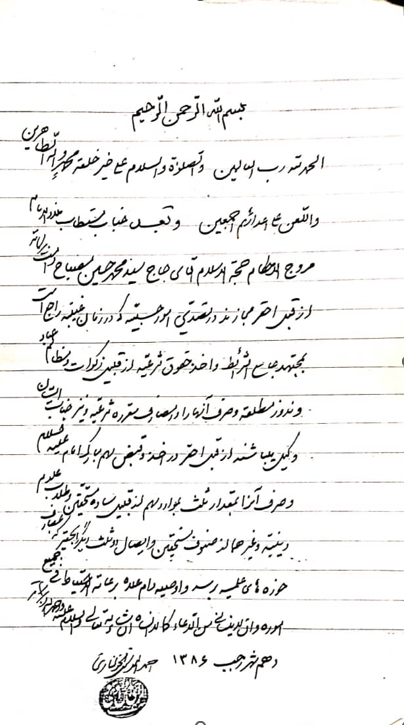 بسم الله الرحمن الرحیم
الحمد لله رب العالمین والصلوة والسلام علی خیر خلقه محمد و آله الطاهرین
واللعن علی اعدائهم اجمعین وبعد جناب مستطاب
مروج الاحکام حجة الاسلام آقای حاج سید محمد حسین مصباح
از قبل احقر مجازند در تصدی امور حسبیه که در زمان غیبت راجع است
بمجتهد جامع الشرائط واخذ حقوق شرعیه از قبیل زکوات و مظالم عباد
ونذور مطلقه وصرف آنها را در مصارف مقرره شرعیه و نیز جناب
وکیل میباشند از قبل احقر در اخذ و قبض سهم مبارک امام علیه السلام
وصرف آن بمقدار ثلث بموارد سهم از قبیل ساده مستحقین وطلاب علوم
دینیه وغیرها از صنوف مستحقین وایصال دو ثلث دیگر بحقیر که
حوزه های علمیه برسد واوصیه دام علاه برعایة الاحتیاط فی جمیع
اموره وان لاینسانی من الدعاء کما لا انساه انشاء الله تعالی والسلام علیه
دهم شهر رجب ۱۳۸۶